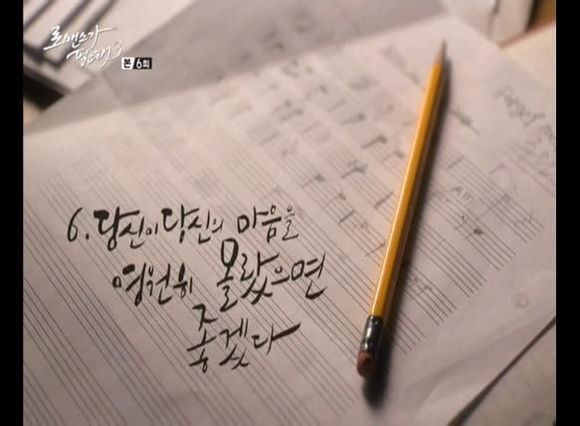 로맨스가
필요해3
본 6회
6. 당신이 당신의 마음을
영원히 몰랐으면
좋겠다
Am